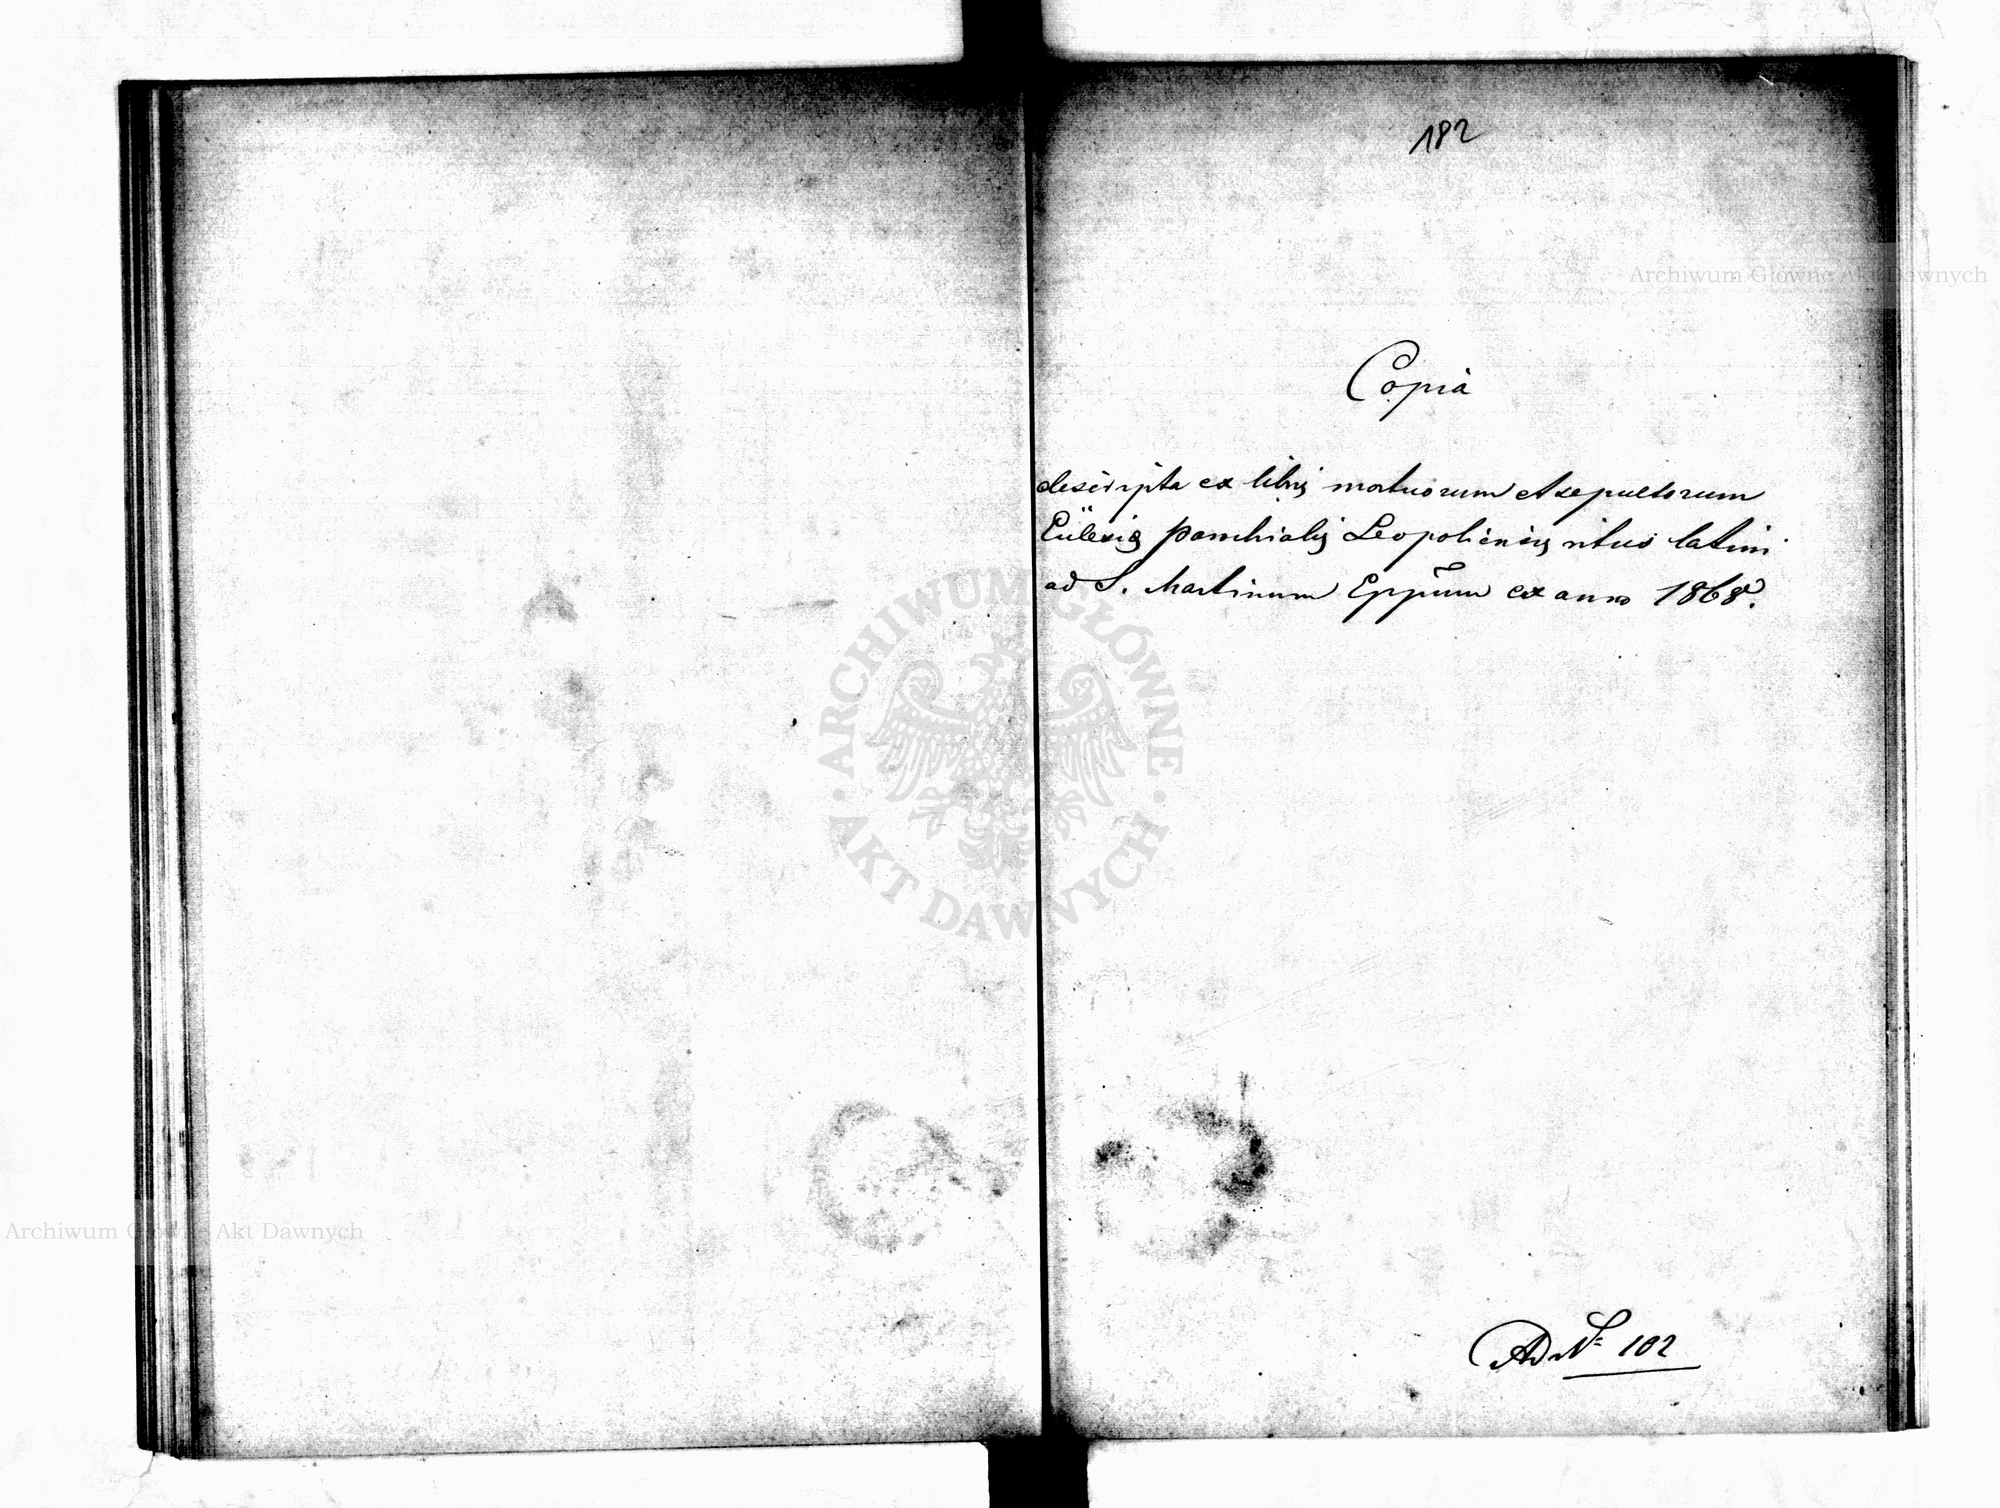 182
Archiwum Główne Akt Dawnych
Copia
descripta ex libris mortuorum et sepultorum
Ecclesiæ parochialis Leopoliensis ritus latini
ad S. Martinum Eppum ex anno 1868.
ARCHIWUM GŁÓWNE
AKT DAWNYCH
Archiwum Główne Akt Dawnych
Ad No 102